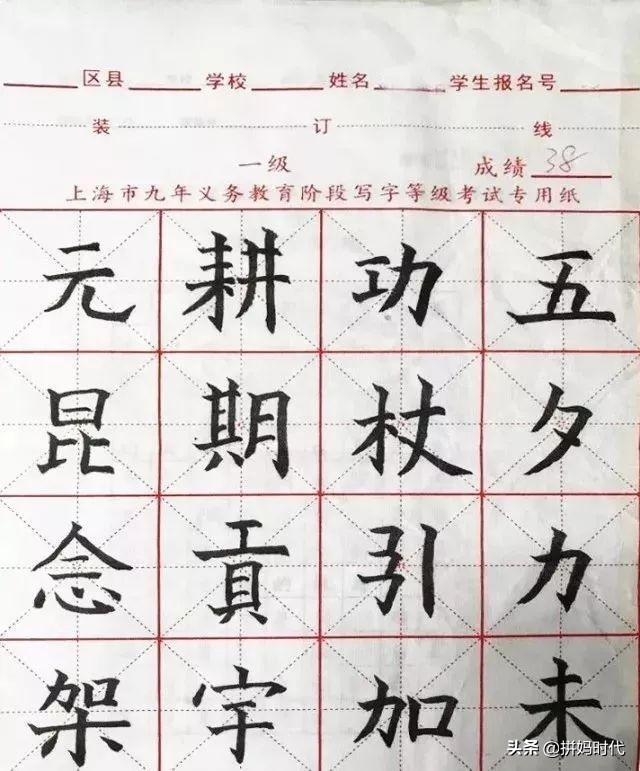 区县 学校 姓名 学生报名号
装 订 线
一级 成绩 38
上海市九年义务教育阶段写字等级考试专用纸
元 耕 功 五
昆 期 杖 夕
念 貢 引 力
架 宇 加 未
头条 @拼妈时代